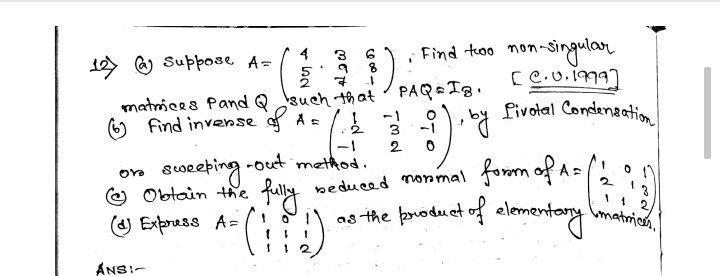 12) (a) Suppose A = ( 4 3 6
5 9 8
2 7 1 ), Find two non-singular
matrices P and Q such that PAQ = I3. [C.U.1999]
(b) Find inverse of A = ( 1 -1 0
2 3 -1
-1 2 0 ), by Pivotal Condensation
or sweeping-out method.
(c) Obtain the fully reduced normal form of A = ( 1 0 1
2 1 3
1 1 2 )
(d) Express A = ( 1 0 1
1 1 1
1 1 2 ) as the product of elementary matrices.
ANS:-